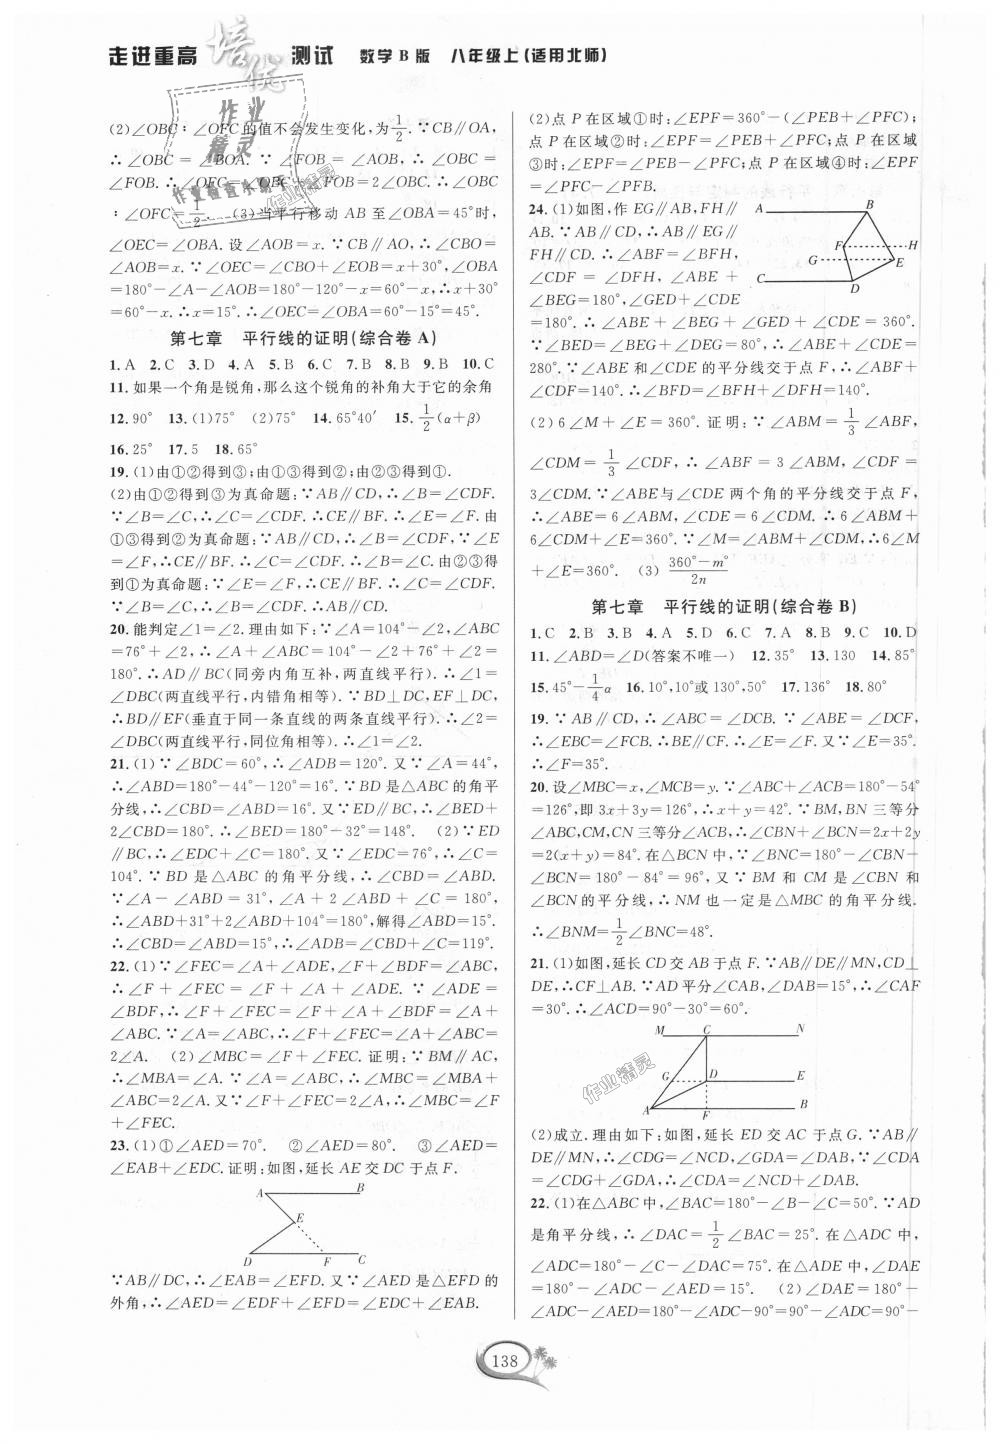 走进重高 培优 测试 数学B版 八年级上(适用北师)
(2)∠OBC∶∠OFC的值不会发生变化,为1/2.∵CB∥OA,
∴∠OBC=∠BOA.∵∠FOB=∠AOB,∴∠OBC=
∠FOB.∴∠OFC=∠FOB=2∠OBC.∴∠OBC
∶∠OFC=1/2. (3)当平行移动AB至∠OBA=45°时,
∠OEC=∠OBA.设∠AOB=x.∵CB∥AO,∴∠CBO=
∠AOB=x.∵∠OEC=∠CBO+∠EOB=x+30°,∠OBA
=180°-∠A-∠AOB=180°-120°-x=60°-x,∴x+30°
=60°-x.∴x=15°.∴∠OEC=∠OBA=60°-15°=45°.
第七章 平行线的证明(综合卷A)
1.A 2.C 3.D 4.A 5.B 6.C 7.B 8.B 9.B 10.C
11.如果一个角是锐角,那么这个锐角的补角大于它的余角
12.90° 13.(1)75° (2)75° 14.65°40′ 15.1/2(α+β)
16.25° 17.5 18.65°
19.(1)由①②得到③;由①③得到②;由②③得到①.
(2)由①②得到③为真命题:∵AB∥CD,∴∠B=∠CDF.
∵∠B=∠C,∴∠C=∠CDF.∴CE∥BF.∴∠E=∠F.由
①③得到②为真命题:∵AB∥CD,∴∠B=∠CDF,∵∠E
=∠F,∴CE∥BF.∴∠C=∠CDF.∴∠B=∠C.由②③得
到①为真命题:∵∠E=∠F,∴CE∥BF.∴∠C=∠CDF.
∵∠B=∠C,∴∠B=∠CDF.∴AB∥CD.
20.能判定∠1=∠2.理由如下:∵∠A=104°-∠2,∠ABC
=76°+∠2,∴∠A+∠ABC=104°-∠2+76°+∠2=
180°.∴AD∥BC(同旁内角互补,两直线平行).∴∠1=
∠DBC(两直线平行,内错角相等).∵BD⊥DC,EF⊥DC,
∴BD∥EF(垂直于同一条直线的两条直线平行).∴∠2=
∠DBC(两直线平行,同位角相等).∴∠1=∠2.
21.(1)∵∠BDC=60°,∴∠ADB=120°.又∵∠A=44°,
∴∠ABD=180°-44°-120°=16°.∵BD是△ABC的角平
分线,∴∠CBD=∠ABD=16°.又∵ED∥BC,∴∠BED+
2∠CBD=180°.∴∠BED=180°-32°=148°. (2)∵ED
∥BC,∴∠EDC+∠C=180°.又∵∠EDC=76°,∴∠C=
104°.∵BD是△ABC的角平分线,∴∠CBD=∠ABD.
∵∠A-∠ABD=31°,∠A+2∠ABD+∠C=180°,
∴∠ABD+31°+2∠ABD+104°=180°,解得∠ABD=15°.
∴∠CBD=∠ABD=15°,∴∠ADB=∠CBD+∠C=119°.
22.(1)∵∠FEC=∠A+∠ADE,∠F+∠BDF=∠ABC,
∴∠F+∠FEC=∠F+∠A+∠ADE.∵∠ADE=
∠BDF,∴∠F+∠FEC=∠F+∠A+∠BDF=∠A+
∠ABC.∵∠A=∠ABC,∴∠F+∠FEC=∠A+∠ABC=
2∠A. (2)∠MBC=∠F+∠FEC.证明:∵BM∥AC,
∴∠MBA=∠A.∵∠A=∠ABC,∴∠MBC=∠MBA+
∠ABC=2∠A.又∵∠F+∠FEC=2∠A,∴∠MBC=∠F
+∠FEC.
23.(1)①∠AED=70°. ②∠AED=80°. ③∠AED=
∠EAB+∠EDC.证明:如图,延长AE交DC于点F.
A B
E
D F C
∵AB∥DC,∴∠EAB=∠EFD.又∵∠AED是△EFD的
外角,∴∠AED=∠EDF+∠EFD=∠EDC+∠EAB.
(2)点P在区域①时:∠EPF=360°-(∠PEB+∠PFC);
点P在区域②时:∠EPF=∠PEB+∠PFC;点P在区域
③时:∠EPF=∠PEB-∠PFC;点P在区域④时:∠EPF
=∠PFC-∠PFB.
24.(1)如图,作EG∥AB,FH∥
AB.∵AB∥CD,∴AB∥EG∥
FH∥CD.∴∠ABF=∠BFH,
∠CDF=∠DFH,∠ABE+
∠BEG=180°,∠GED+∠CDE
A B
F H
G E
C D
=180°.∴∠ABE+∠BEG+∠GED+∠CDE=360°.
∵∠BED=∠BEG+∠DEG=80°,∴∠ABE+∠CDE=
280°.∵∠ABE和∠CDE的平分线交于点F,∴∠ABF+
∠CDF=140°.∴∠BFD=∠BFH+∠DFH=140°.
(2)6∠M+∠E=360°.证明:∵∠ABM=1/3∠ABF,
∠CDM=1/3∠CDF,∴∠ABF=3∠ABM,∠CDF=
3∠CDM.∵∠ABE与∠CDE两个角的平分线交于点F,
∴∠ABE=6∠ABM,∠CDE=6∠CDM.∴6∠ABM+
6∠CDM+∠E=360°.∵∠M=∠ABM+∠CDM,∴6∠M
+∠E=360°. (3)(360°-m°)/2n
第七章 平行线的证明(综合卷B)
1.C 2.B 3.B 4.A 5.D 6.C 7.A 8.B 9.C 10.D
11.∠ABD=∠D(答案不唯一) 12.35° 13.130 14.85°
15.45°-1/4α 16.10°,10°或130°,50° 17.136° 18.80°
19.∵AB∥CD,∴∠ABC=∠DCB.∵∠ABE=∠DCF,
∴∠EBC=∠FCB.∴BE∥CF.∴∠E=∠F.又∵∠E=35°.
∴∠F=35°.
20.设∠MBC=x,∠MCB=y.∵∠ABC+∠ACB=180°-54°
=126°,即3x+3y=126°,∴x+y=42°.∵BM,BN三等分
∠ABC,CM,CN三等分∠ACB,∴∠CBN+∠BCN=2x+2y
=2(x+y)=84°.在△BCN中,∵∠BNC=180°-∠CBN-
∠BCN=180°-84°=96°,又∵BM和CM是∠CBN和
∠BCN的平分线,∴NM也一定是△MBC的角平分线.
∴∠BNM=1/2∠BNC=48°.
21.(1)如图,延长CD交AB于点F.∵AB∥DE∥MN,CD⊥
DE,∴CF⊥AB.∵AD平分∠CAB,∠DAB=15°,∴∠CAF
=30°.∴∠ACD=90°-30°=60°.
M C N
G D E
A F B
(2)成立.理由如下:如图,延长ED交AC于点G.∵AB∥
DE∥MN,∴∠CDG=∠NCD,∠GDA=∠DAB.∵∠CDA
=∠CDG+∠GDA,∴∠CDA=∠NCD+∠DAB.
22.(1)在△ABC中,∠BAC=180°-∠B-∠C=50°.∵AD
是角平分线,∴∠DAC=1/2∠BAC=25°.在△ADC中,
∠ADC=180°-∠C-∠DAC=75°.在△ADE中,∠DAE
=180°-∠ADC-∠AED=15°. (2)∠DAE=180°-
∠ADC-∠AED=180°-∠ADC-90°=90°-∠ADC=90°-
138